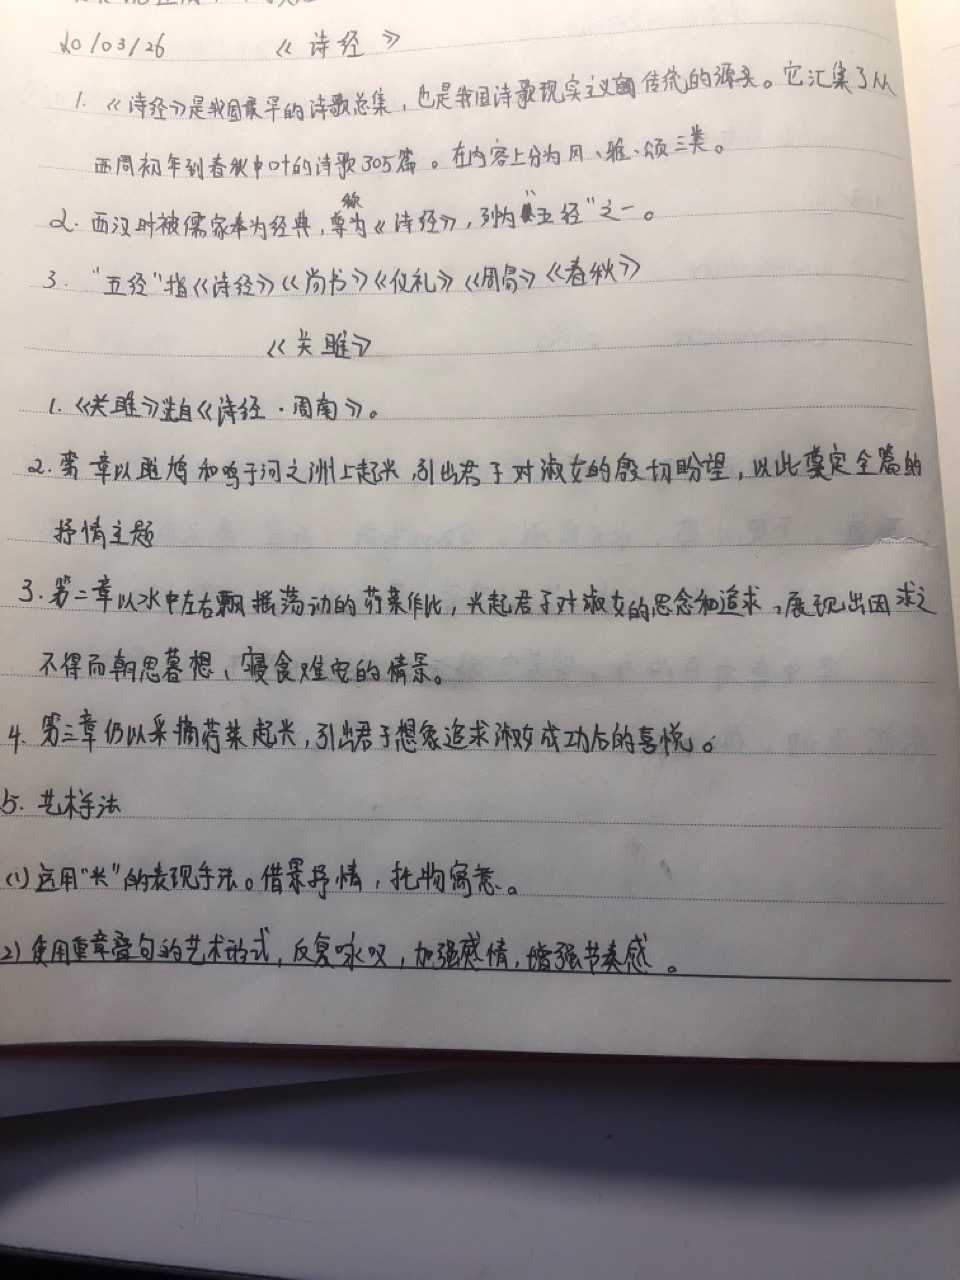 20/03/26 《诗经》
1. 《诗经》是我国最早的诗歌总集，也是我国诗歌现实主义传统的源头。它汇集了从
西周初年到春秋中叶的诗歌305篇。在内容上分为风、雅、颂三类。
2. 西汉时被儒家奉为经典，尊称为《诗经》，列为“五经”之一。
3. “五经”指《诗经》《尚书》《仪礼》《周易》《春秋》
《关雎》
1. 《关雎》选自《诗经·周南》。
2. 第一章以雎鸠和鸣于河之洲上起兴，引出君子对淑女的殷切盼望，以此奠定全篇的
抒情主题
3. 第二章以水中左右飘摇荡动的荇菜作比，兴起君子对淑女的思念和追求，展现出因求之
不得而朝思暮想、寝食难安的情景。
4. 第三章仍以采摘荇菜起兴，引出君子想象追求淑女成功后的喜悦。
5. 艺术手法
(1) 运用“兴”的表现手法。借景抒情，托物寓意。
2) 使用重章叠句的艺术形式，反复咏叹，加强感情，增强节奏感。